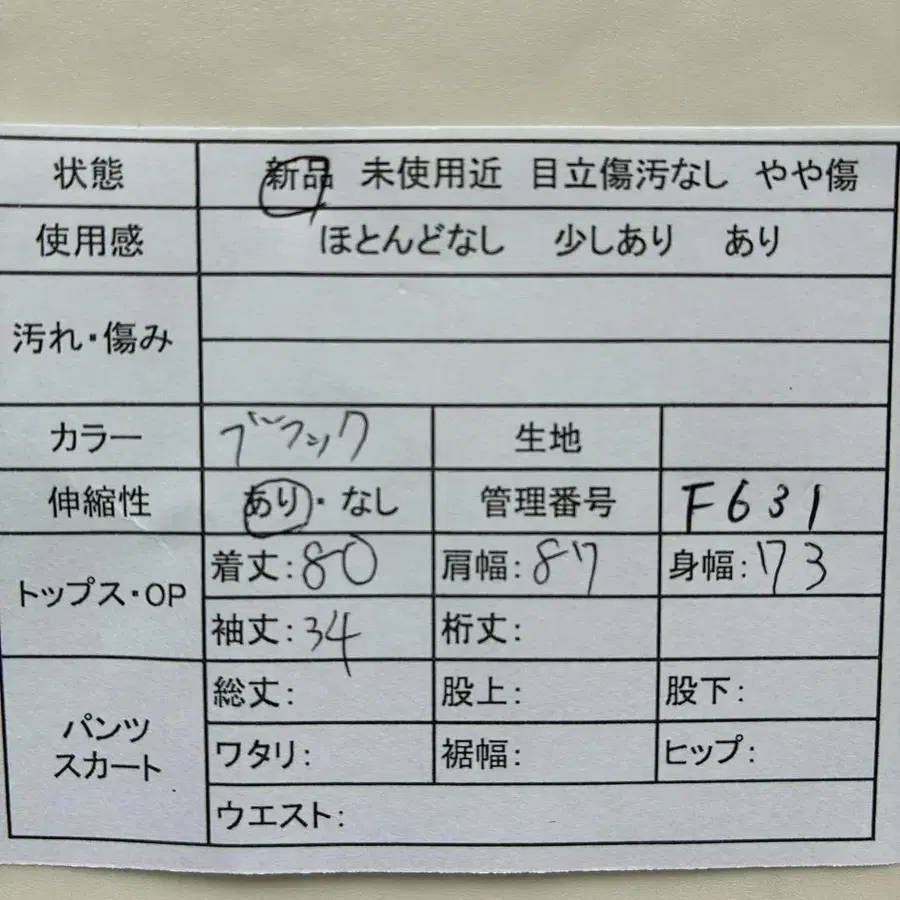 状態 新品 未使用近 目立傷汚なし やや傷
使用感 ほとんどなし 少しあり あり
汚れ・傷み
カラー ブラック 生地
伸縮性 あり・なし 管理番号 F631
トップス・OP 着丈:80 肩幅:87 身幅:73
袖丈:34 裄丈:
パンツ
スカート
総丈: 股上: 股下:
ワタリ: 裾幅: ヒップ:
ウエスト: